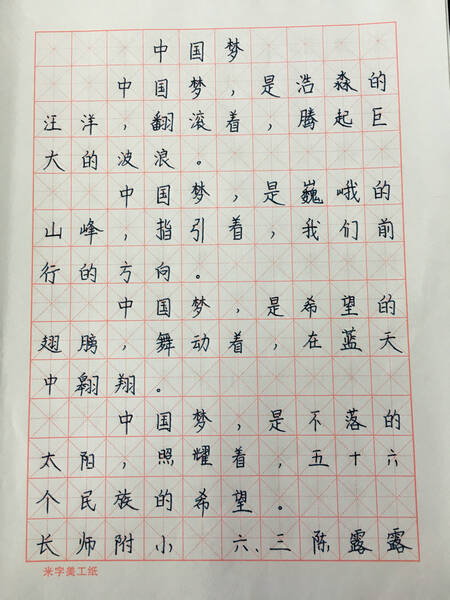 中国梦
中国梦，是浩淼的
汪洋，翻滚着，腾起巨
大的波浪。
中国梦，是巍峨的
山峰，指引着，我们前
行的方向。
中国梦，是希望的
翅膀，舞动着，在蓝天
中翱翔。
中国梦，是不落的
太阳，照耀着，五十六
个民族的希望。
长师附小 六、三 陈露露
米字美工纸